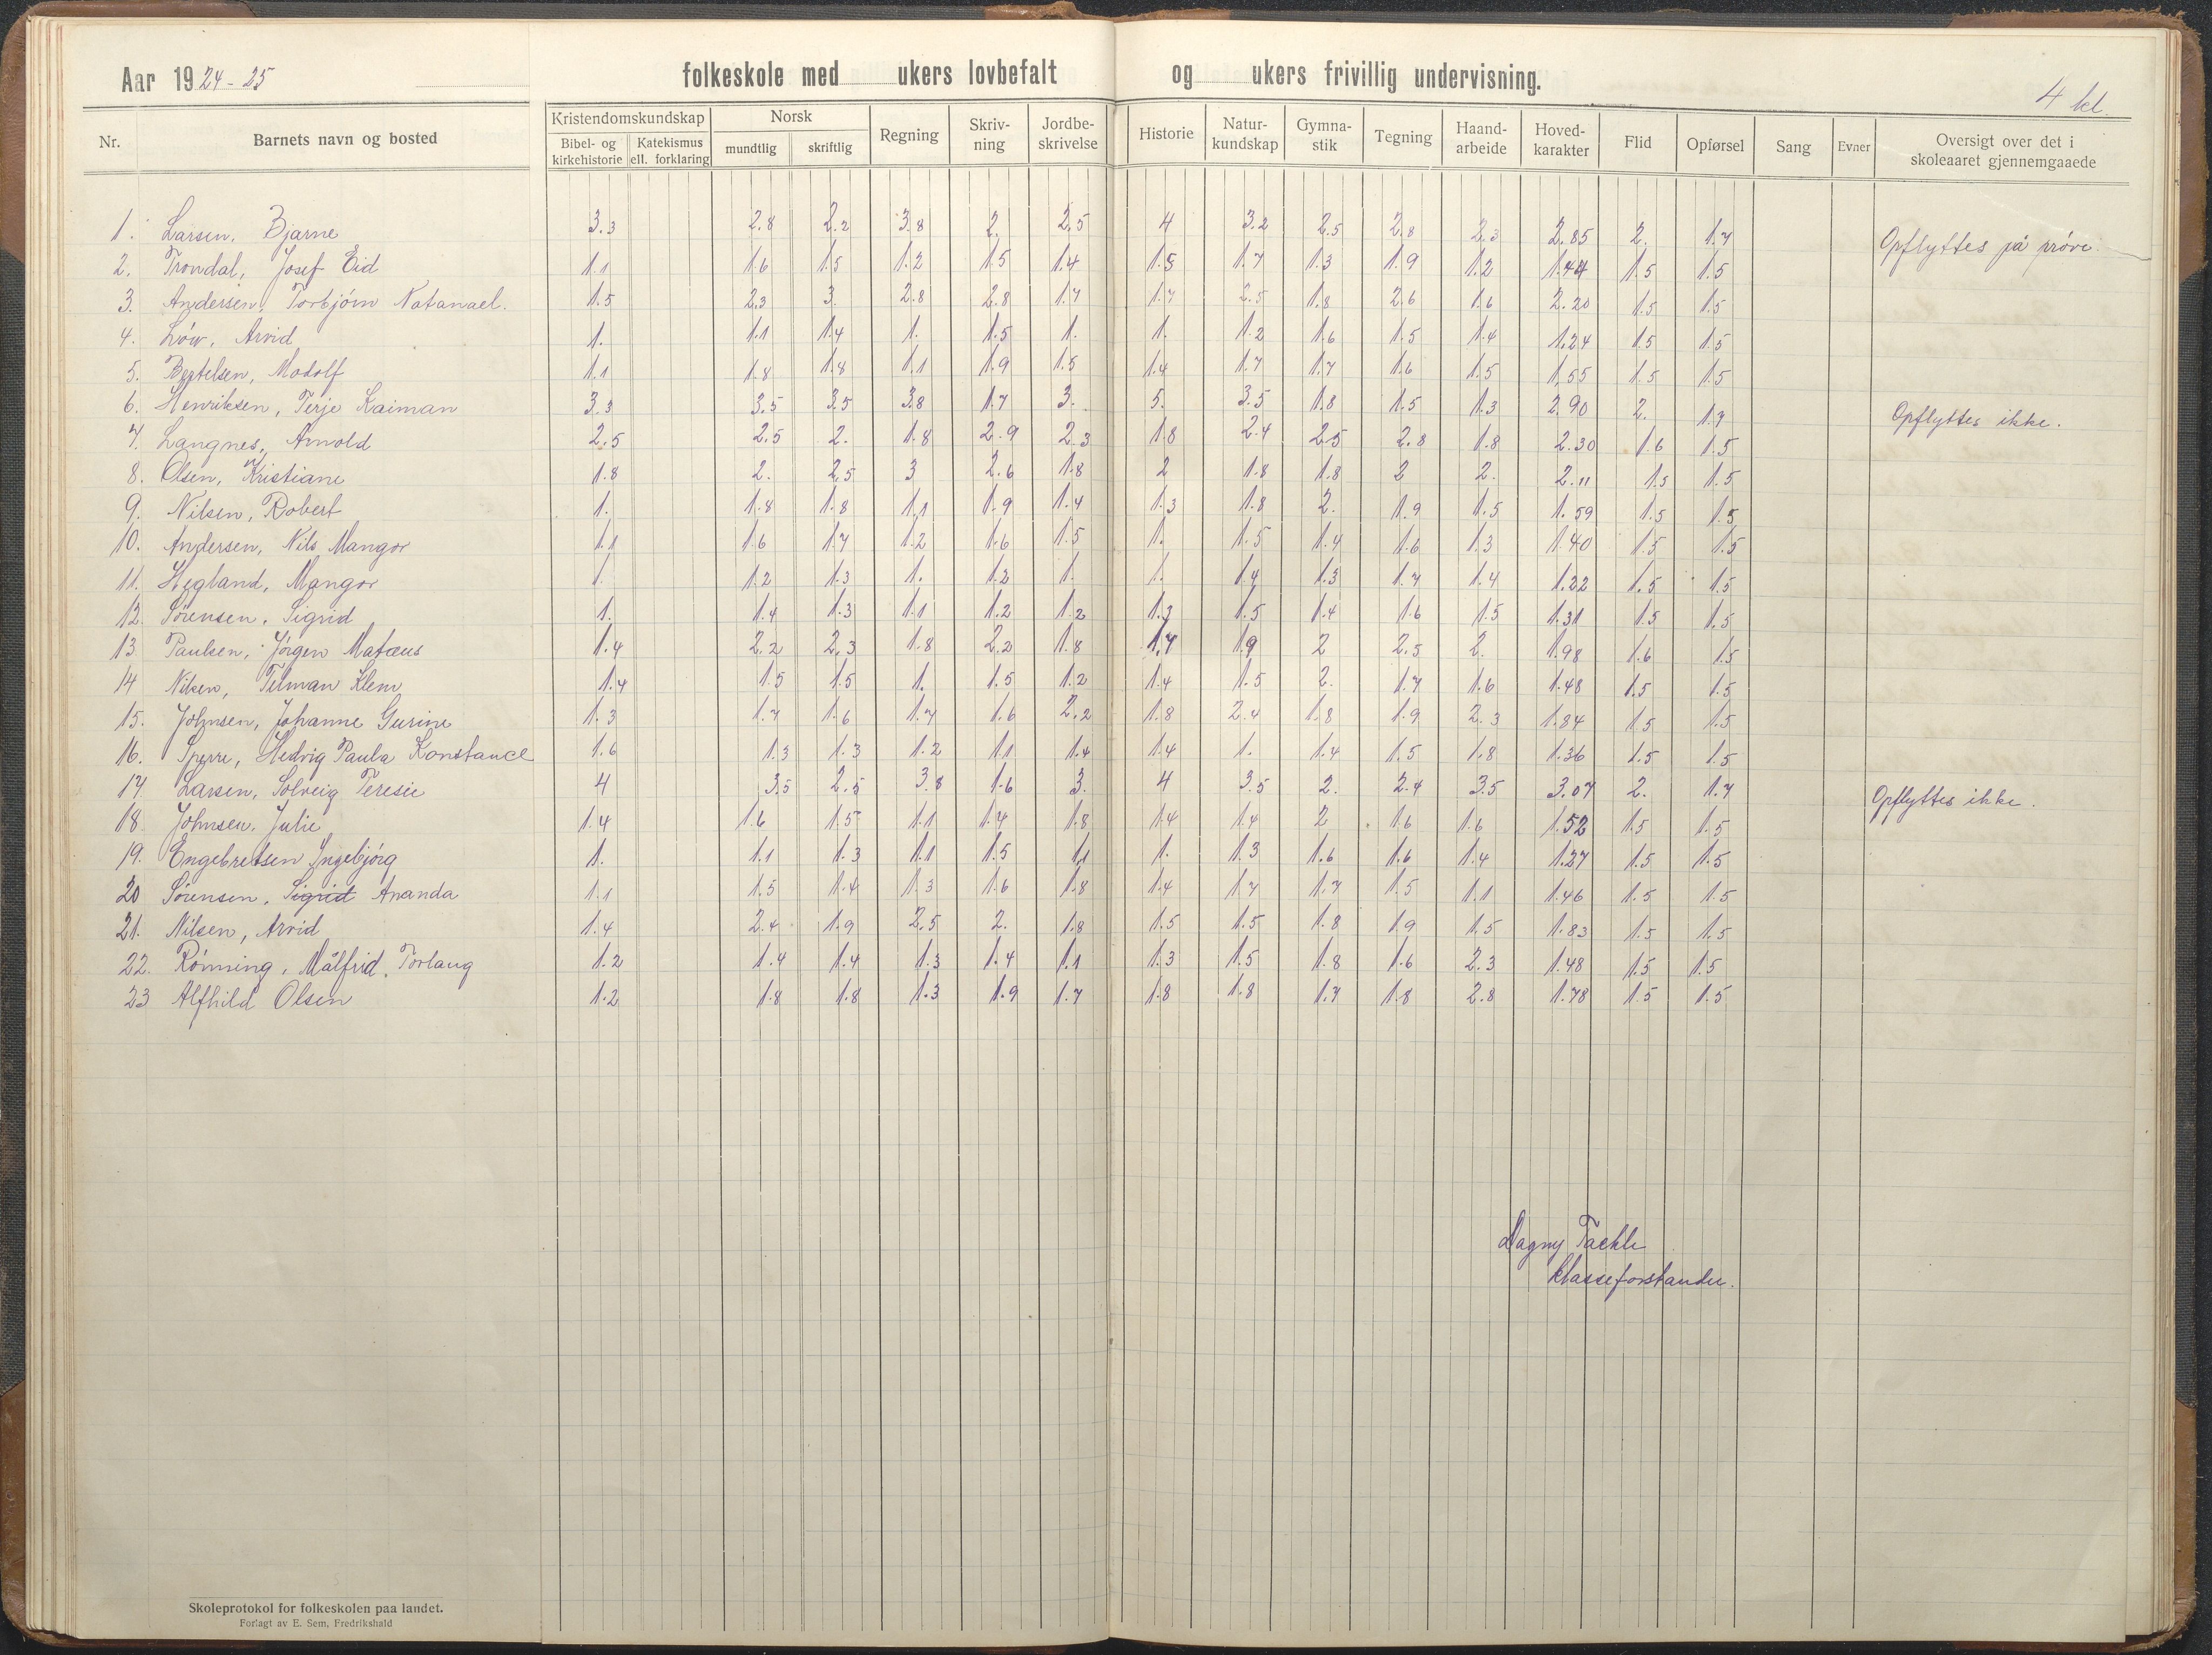 Aar 1924-25 folkeskole med ukers lovbefalt og ukers frivillig undervisning.
4 kl.
Nr. Barnets navn og bosted Kristendomskundskap Bibel- og kirkehistorie Katekismus ell. forklaring Norsk mundtlig skriftlig Regning Skriv-ning Jordbe-skrivelse Historie Natur-kundskap Gymna-stik Tegning Haand-arbeide Hoved-karakter Flid Opførsel Sang Evner Oversigt over det i skoleaaret gjennemgaaede
1. Larsen, Bjarne 3.3 2.8 2.2 3.8 2. 2.5 4 3.2 2.5 2.8 2.3 2.85 2. 1.7 Opflyttes på prøve.
2. Trondal, Josef Eid 1.1 1.6 1.5 1.2 1.5 1.4 1.5 1.7 1.3 1.9 1.2 1.44 1.5 1.5
3. Andersen, Torbjørn Natanael. 1.5 2.3 3. 2.8 2.8 1.7 1.7 2.5 1.8 2.6 1.6 2.20 1.5 1.5
4. Löw, Arvid 1. 1.1 1.4 1. 1.5 1. 1. 1.2 1.6 1.5 1.4 1.24 1.5 1.5
5. Bertelsen, Modolf 1.1 1.8 1.8 1.1 1.9 1.5 1.4 1.7 1.7 1.6 1.5 1,55 1.5 1.5
6. Henriksen, Terje Kaiman 3.3 3.5 3.5 3.8 1.7 3. 5. 3.5 1.8 1.5 1.3 2.90 2. 1.7 Opflyttes ikke.
7. Langnes, Arnold 2.5 2.5 2. 1.8 2.9 2.3 1.8 2.4 2.5 2.8 1.8 2.30 1.6 1.5
8. Olsen, Kristiane 1.8 2. 2.5 3 2.6 1.8 2 1.8 1.8 2 2. 2.11 1.5 1.5
9. Nilsen, Robert 1. 1.8 1.8 1.1 1.9 1.4 1.3 1.8 2. 1.9 1.5 1.59 1.5 1.5
10. Andersen, Nils Mangor 1.1 1.6 1.7 1.2 1.6 1.5 1. 1.5 1.4 1.6 1.3 1.40 1.5 1.5
11. Hegland, Mangor 1. 1.2 1.3 1. 1.2 1. 1. 1.4 1.3 1.7 1.4 1.22 1.5 1.5
12. Sörensen, Sigrid 1. 1.4 1.3 1.1 1.2 1.2 1.3 1.5 1.4 1.6 1.5 1.31 1.5 1.5
13. Paulsen, Jörgen Matæus 1.4 2.2 2.3 1.8 2.2 1.8 1.7 1.9 2 2.5 2. 1.98 1.6 1.5
14 Nilsen, Tilman Klem 1.4 1.5 1.5 1. 1.5 1.2 1.4 1.5 2. 1.7 1.6 1.48 1.5 1.5
15. Johnsen, Johanne Gurine 1.3 1.7 1.6 1.7 1.6 2.2 1.8 2.4 1.8 1.9 2.3 1.84 1.5 1.5
16. Sperre, Hedvig Paula Konstance 1.6 1.3 1.3 1.2 1.1 1.4 1.4 1. 1.4 1.5 1.8 1.36 1.5 1.5
17. Larsen, Solveig Teresie 4 3.5 2.5 3.8 1.6 3. 4 3.5 2. 2.4 3.5 3.07 2. 1.7 Opflyttes ikke.
18. Johnsen, Julie 1.4 1.6 1.5 1.1 1.4 1.8 1.4 1.4 2 1.6 1.6 1.52 1.5 1.5
19. Engebretsen Ingebjörg 1. 1.1 1.3 1.1 1.5 1.1 1. 1.3 1.6 1.6 1.4 1.27 1.5 1.5
20 Sörensen, Sigrid Ananda 1.1 1.5 1.4 1.3 1.6 1.8 1.4 1.7 1.7 1.5 1.1 1.46 1.5 1.5
21. Nilsen, Arvid 1.4 2.4 1.9 2.5 2. 1.8 1.5 1.5 1.8 1.9 1.5 1.83 1.5 1.5
22. Rönning, Målfrid Torlaug 1.2 1.4 1.4 1.3 1.4 1.1 1.3 1.5 1.8 1.6 2.3 1.48 1.5 1.5
23 Alfhild Olsen 1.2 1.8 1.8 1.3 1.9 1.7 1.8 1.8 1.7 1.8 2.8 1.78 1.5 1.5
Dagny Tackle
klasseforstander.
Skoleprotokol for folkeskolen paa landet.
Forlagt av E. Sem, Fredrikshald